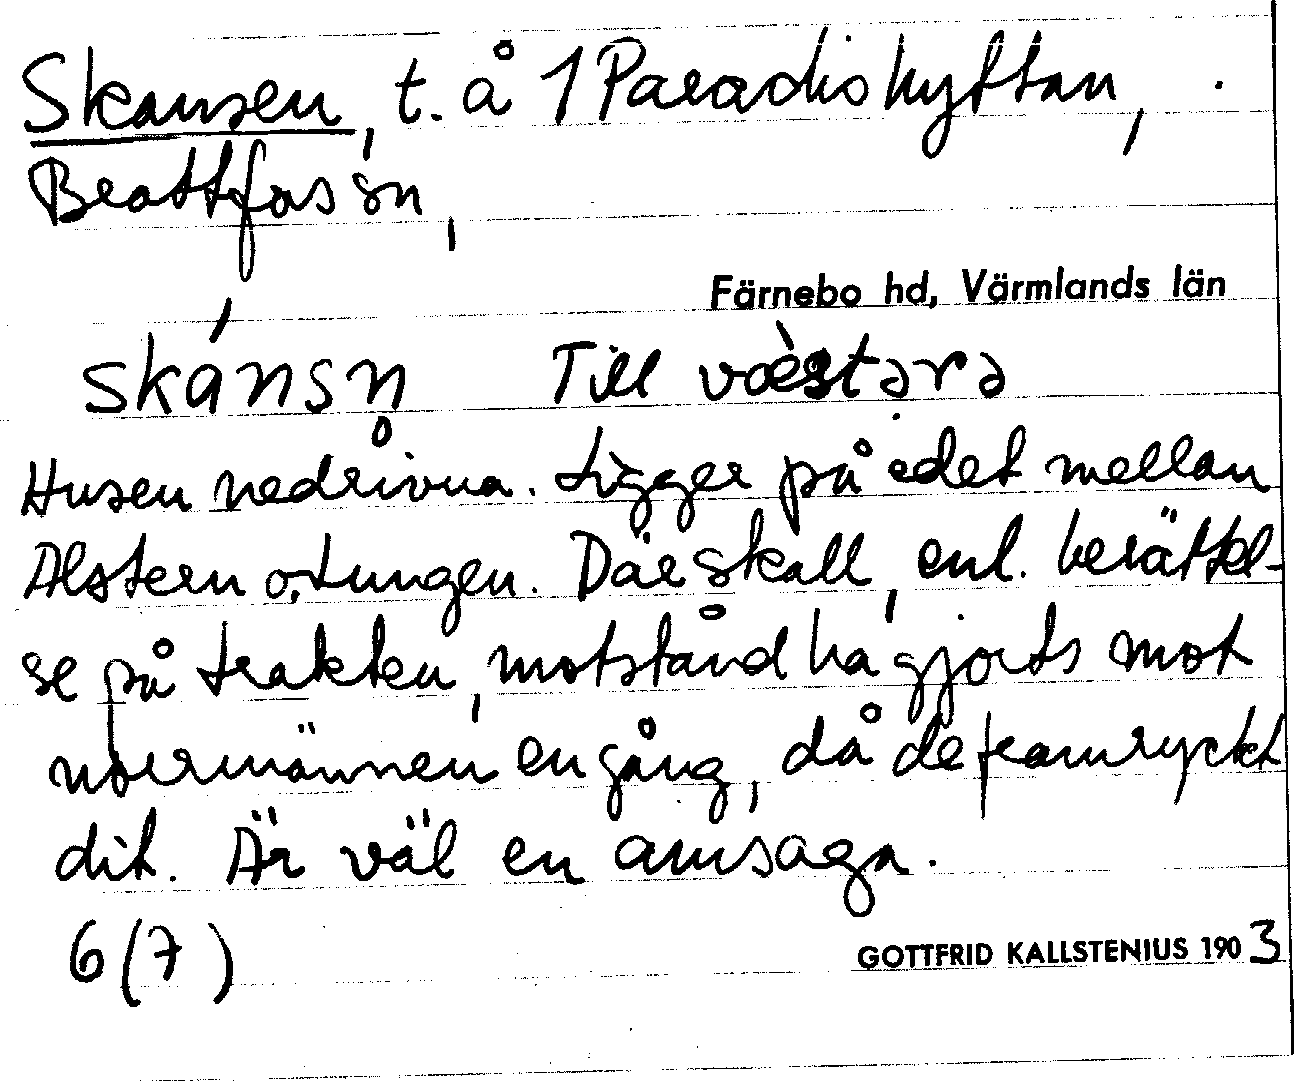 Skansen, t. å 1 Paradishyttan,
Brattfors sn,
Färnebo hd, Värmlands län
skánsn̥ Till væ̀stərə
Husen nedrivna. Ligger på edet mellan
Alstern o. Lungen. Där skall, enl. berättel-
se på trakten, motstånd ha gjorts mot
norrmännen en gång, då de framryckt
dit. Är väl en amsaga.
6 (7)
GOTTFRID KALLSTENIUS 1903